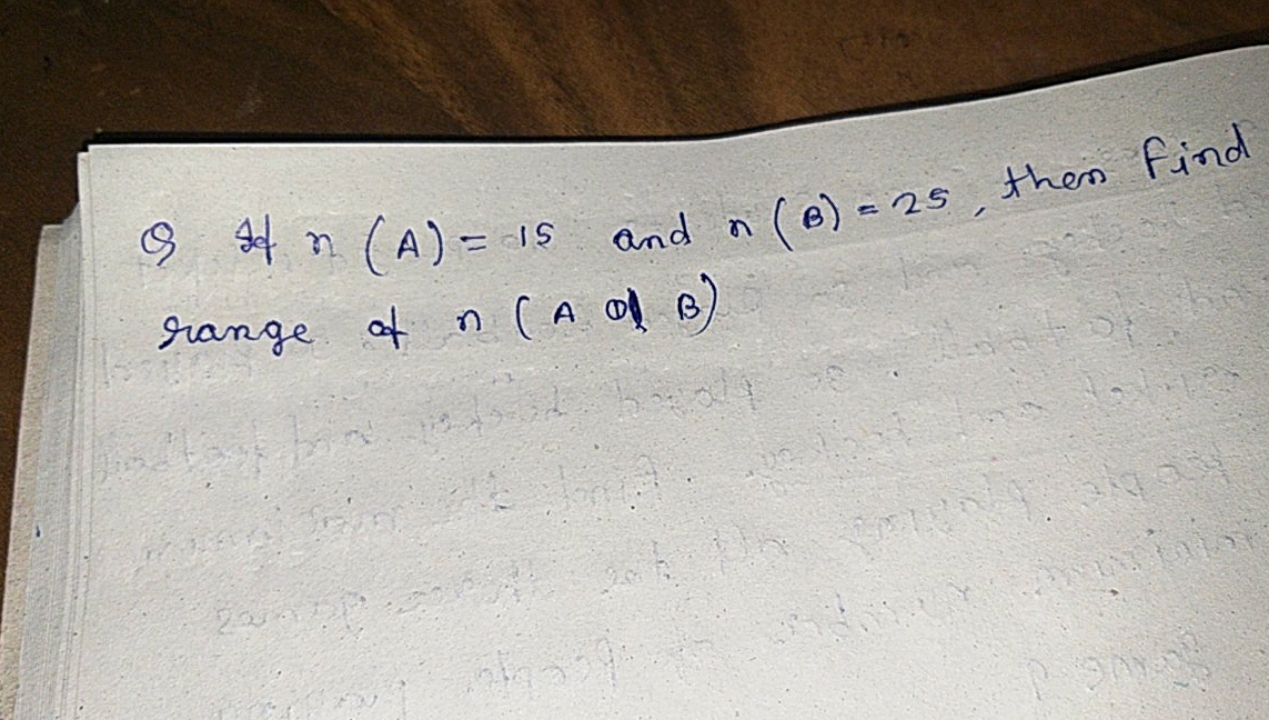 Q If n (A) = 15 and n (B) = 25, then find
range of n ( A B)